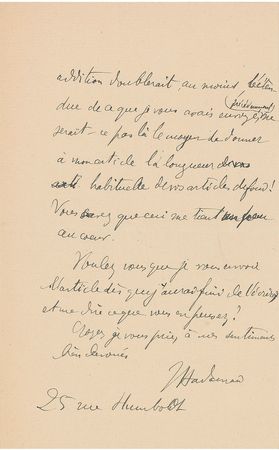 addition doublerait, au moins, l'éten
due de ce que je vous avais envoyé; ne
serait-ce pas là le moyen de donner
à mon article la longueur
habituelle de vos articles de fond!
Vous savez que ceci me tient un peu
au coeur.
Voulez vous que je vous envoie
l'article dès que j'aurai fini de l'écrire
et me dire ce que vous en pensez?
Croyez, je vous prie, à mes sentiments
bien dévoués
J Hadamard
25 rue Humboldt